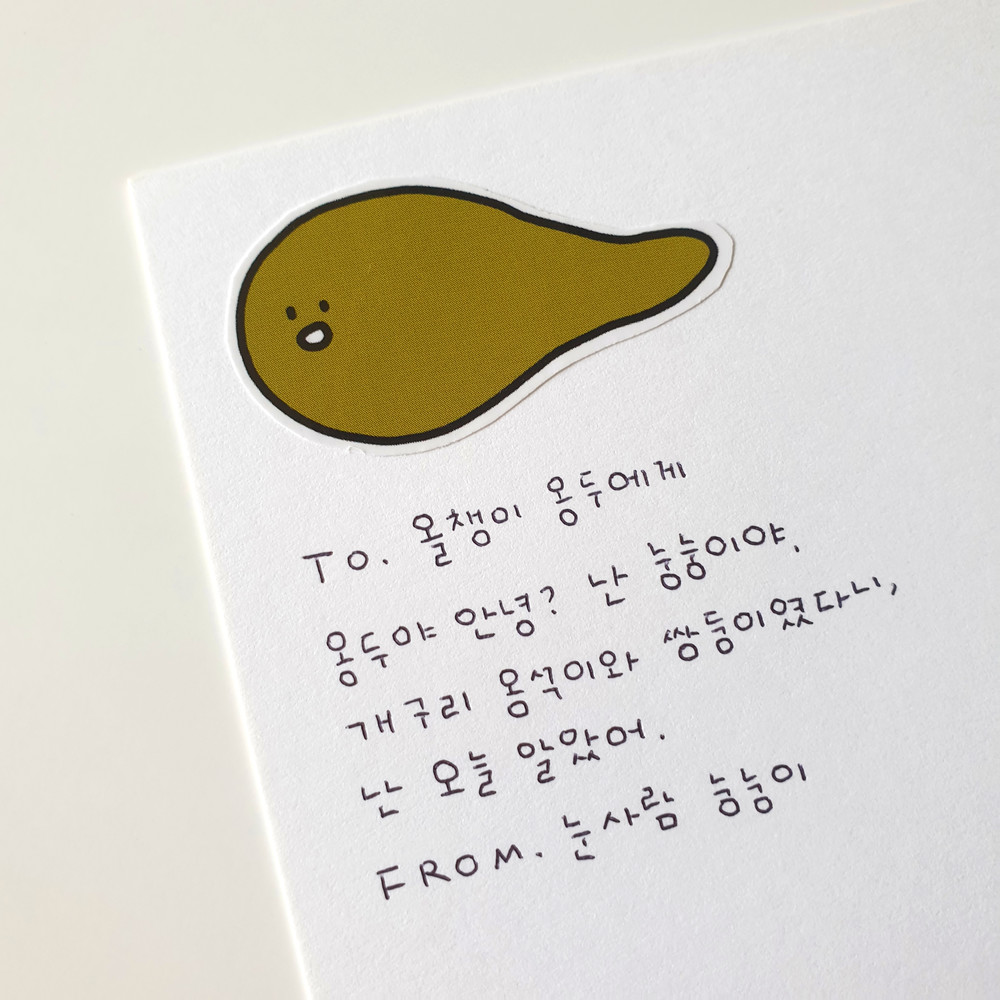 TO. 올챙이 옹두에게
옹두야 안녕? 난 눙눙이야.
개구리 옹석이와 쌍둥이였다니,
난 오늘 알았어.
FROM. 눈사람 눙눙이